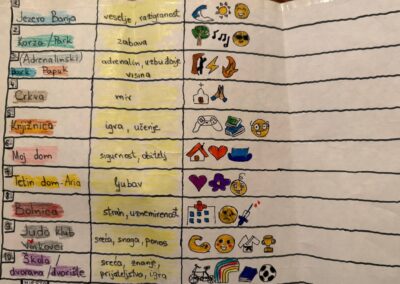 1 Jezero Banja veselje, razigranost
2 Korzo/Park zabava
3 (Adrenalinski) adrenalin, uzbuđenje
park Papuk visina
4 Crkva mir
5 Knjižnica igra, učenje
6 Moj dom sigurnost, obitelj
7 Tetin dom-Aria ljubav
8 Bolnica strah, uznemirenost
9 Judo klub sreća, snaga, ponos
Vinkovci
10 Škola/ sreća, znanje,
dvorana/dvorište prijateljstvo, igra